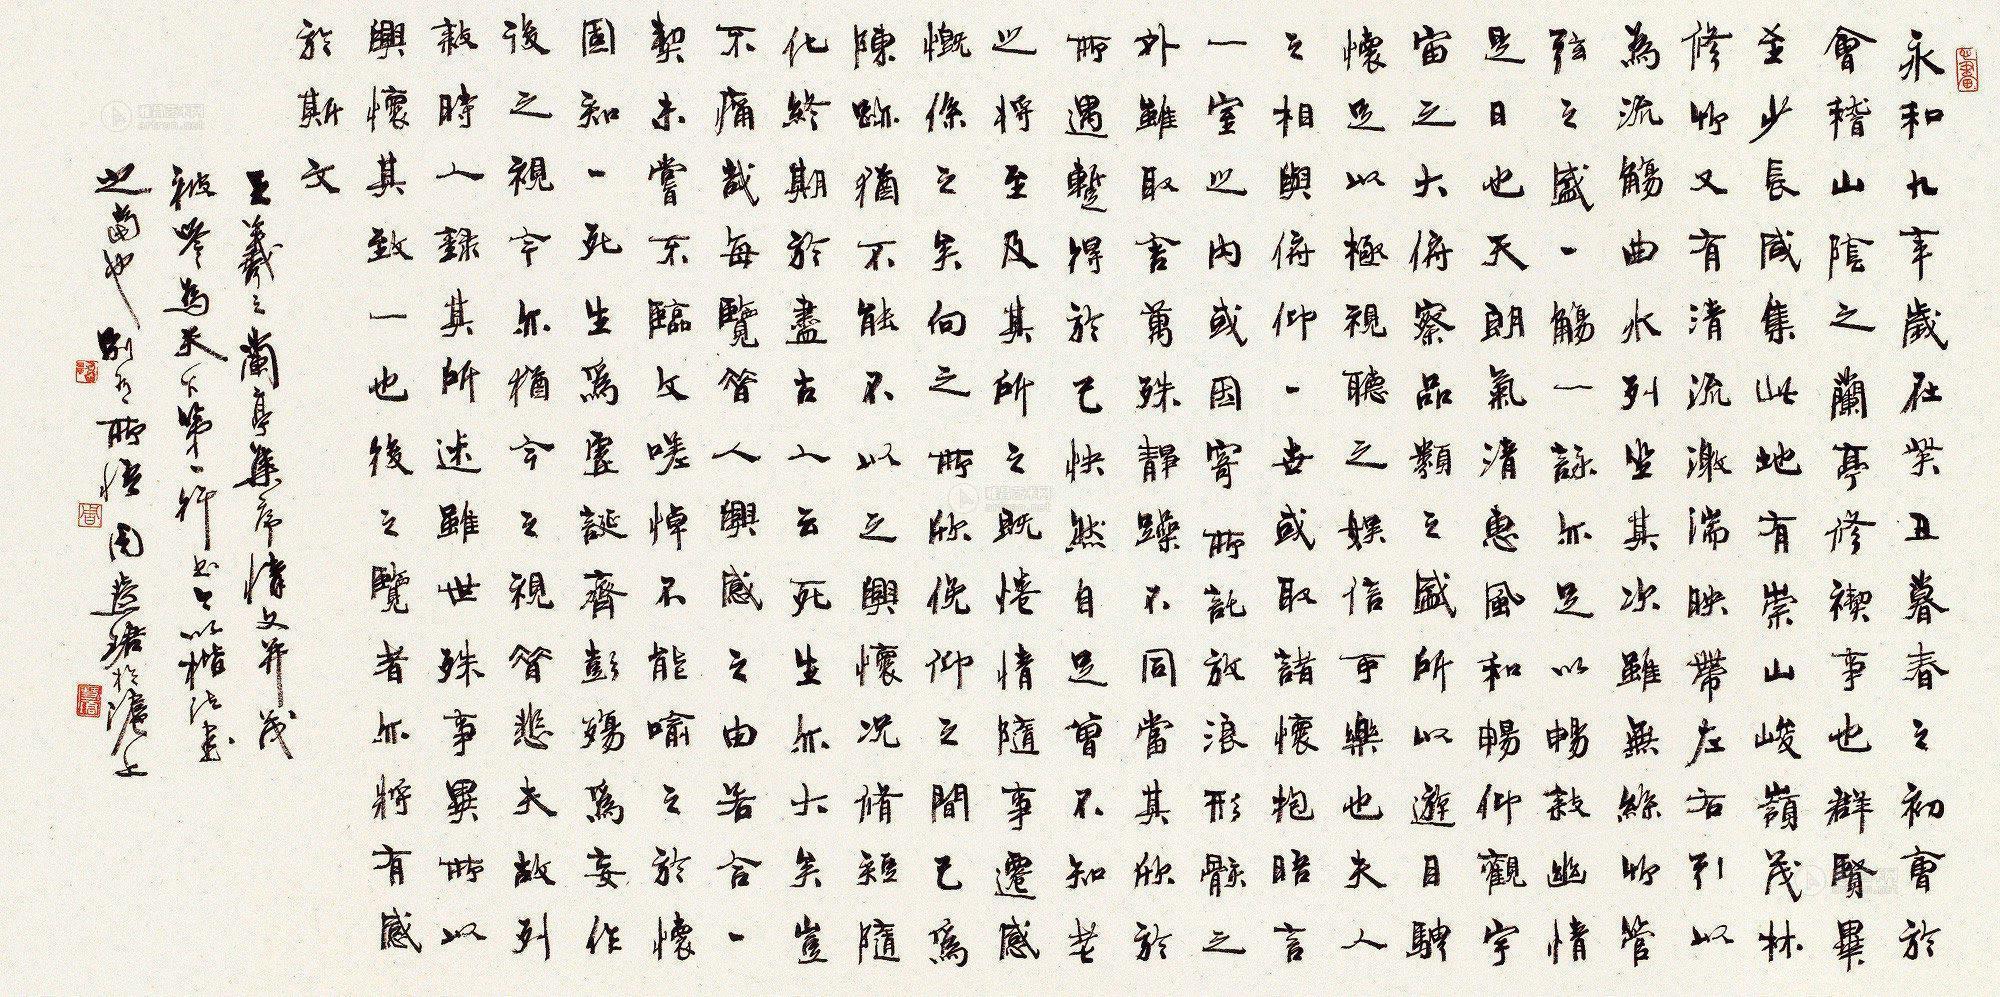 永和九年歲在癸丑暮春之初會於
會稽山陰之蘭亭修禊事也群賢畢
至少長咸集此地有崇山峻嶺茂林
修竹又有清流激湍映帶左右引以
為流觴曲水列坐其次雖無絲竹管
弦之盛一觴一詠亦足以暢敘幽情
是日也天朗氣清惠風和暢仰觀宇
宙之大俯察品類之盛所以遊目騁
懷足以極視聽之娛信可樂也夫人
之相與俯仰一世或取諸懷抱晤言
一室之內或因寄所託放浪形骸之
外雖取舍萬殊靜躁不同當其欣於
所遇蹔得於己快然自足曾不知老
之將至及其所之既惓情隨事遷感
慨係之矣向之所欣俛仰之間已爲
陳跡猶不能不以之興懷況脩短隨
化終期於盡古人云死生亦大矣豈
不痛哉每覽昔人興感之由若合一
契未嘗不臨文嗟悼不能喻之於懷
固知一死生爲虛誕齊彭殤爲妄作
後之視今亦猶今之視昔悲夫故列
敘時人錄其所述雖世殊事異所以
興懷其致一也後之覽者亦將有感
於斯文
王羲之蘭亭集序情文并茂
被譽為天下第一行書今以楷法書
之當也別有所悟周慧珺於滬上